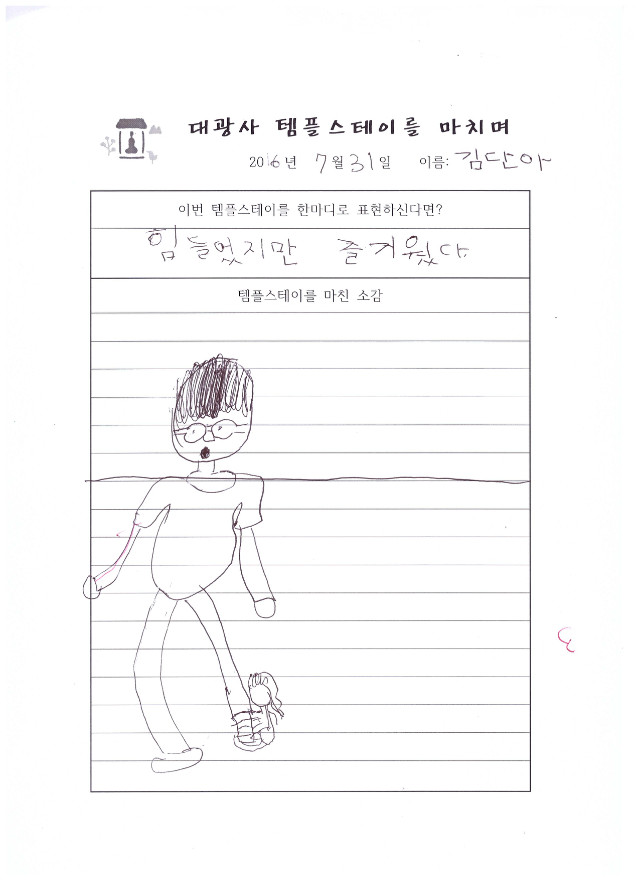 대광사 템플스테이를 마치며
2016년 7월 31일 이름: 김단아
이번 템플스테이를 한마디로 표현하신다면?
힘들었지만 즐거웠다
템플스테이를 마친 소감